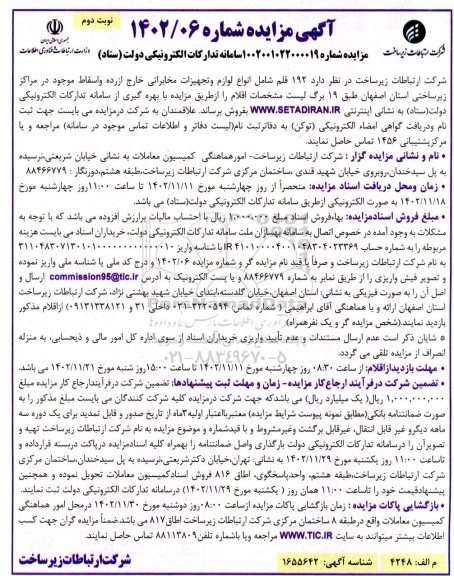 نوبت دوم
آگهی مزایده شماره ۱۴۰۲/۰۶
مزایده شماره ۱۰۰۲۰۰۱۰۲۲۰۰۰۰۱۹ سامانه تدارکات الکترونیکی دولت (ستاد)
شرکت ارتباطات زیرساخت
وزارت ارتباطات و فناوری اطلاعات
شرکت ارتباطات زیرساخت در نظر دارد ۱۹۲ قلم شامل انواع لوازم وتجهیزات مخابراتی خارج ازرده واسقاط موجود در مراکز
زیرساختی استان اصفهان طبق ۱۹ برگ لیست مشخصات اقلام را ازطریق مزایده با بهره گیری از سامانه تدارکات الکترونیکی
دولت(ستاد) به نشانی اینترنتی WWW.SETADIRAN.IR بفروش برساند. علاقمندان به شرکت درمزایده می بایست جهت ثبت
نام ودریافت گواهی امضاء الکترونیکی (توکن) به دفاترثبت نام(لیست دفاتر و اطلاعات تماس موجود در سامانه) مراجعه و یا
مرکزپشتیبانی ۱۴۵۶ تماس حاصل نمایند.
• نام و نشانی مزایده گزار : شرکت ارتباطات زیرساخت- امورهماهنگی کمیسیون معاملات به نشانی خیابان شریعتی،نرسیده
به پل سیدخندان،روبروی خیابان شهید قندی ،ساختمان مرکزی شرکت ارتباطات زیرساخت،طبقه هشتم،دورنگار : ۸۸۴۶۶۷۷۹
• زمان ومحل دریافت اسناد مزایده: منحصراً از روز چهارشنبه مورخ ۱۴۰۲/۱۱/۱۱ تا ساعت ۱۱:۰۰روز چهارشنبه مورخ
۱۴۰۲/۱۱/۱۸ به صورت الکترونیکی ازطریق سامانه تدارکات الکترونیکی دولت(ستاد) می باشد.
• مبلغ فروش اسنادمزایده: بهاءفروش اسناد مبلغ ۱.۰۰۰.۰۰۰ ریال با احتساب مالیات برارزش افزوده می باشد که با توجه به
مشکلات به وجود آمده در خصوص اتصال به سامانه بهسازان ملت سامانه تدارکات الکترونیکی دولت، خریداران اسناد می بایست هزینه
مربوطه را به شماره حساب با شناسه واریز
به نام شرکت ارتباطات زیرساخت و صرفاً با قید نام مزایده گر و شماره مزایده ۱۴۰۲/۰۶ و درج کد ملی یا شناسه ملی واریز نموده
و تصویر فیش واریزی را از طریق نمابر به شماره ۸۸۴۶۶۷۷۹ و یا پست الکترونیک به آدرس commission95@tic.ir ارسال و
اصل آن را به صورت فیزیکی به نشانی: استان اصفهان،خیابان گلدسته،ابتدای خیابان شهید بهشتی نژاد، شرکت ارتباطات زیرساخت
استان اصفهان ارائه و با هماهنگی آقای ابراهیمی ( شماره تماس: ۳۲۲۰۵۹۴-۰۳۱ داخلی ۳۱ و ۰۹۱۳۱۳۳۸۱۲۱) ازاقلام مذکور
بازدید نمایند.(شخص مزایده گر و یک نفرهمراه)
* شایان ذکر است عدم ارسال مستندات و عدم تأیید واریزی خریداران اسناد از سوی اداره کل امور مالی و ذیحسابی، به منزله
انصراف از مزایده تلقی می گردد.
• مهلت بازدیدازاقلام: از ساعت ۰۸:۳۰ روز چهارشنبه مورخ ۱۴۰۲/۱۱/۱۱ تا ساعت ۱۵:۰۰روز شنبه مورخ ۱۴۰۲/۱۱/۲۱ می باشد.
• تضمین شرکت درفرآیند ارجاع کار مزایده- زمان و مهلت ثبت پیشنهادها: تضمین شرکت درفرآیندارجاع کار مزایده مبلغ
۱,۰۰۰,۰۰۰,۰۰۰ ریال (یک میلیارد ریال) می باشدکه جهت شرکت درمزایده کلیه شرکت کنندگان می بایست مبلغ مذکور را به
صورت ضمانتنامه بانکی(مطابق نمونه پیوست شرایط مزایده) معتبربااعتبار اولیه۳ماه از تاریخ صدور و قابل تمدید برای یک دوره سه
ماهه دیگرو غیر قابل انتقال، غیرقابل برگشت وغیرمشروط و با قیدشماره و موضوع مزایده به نام شرکت ارتباطات زیرساخت تهیه و
تصویرآن را درسامانه تدارکات الکترونیکی دولت بارگذاری واصل ضمانتنامه را بهمراه کلیه اسنادمزایده درپاکت دربسته قرارداده و
تاساعت ۱۱:۰۰ روز یکشنبه مورخ ۱۴۰۲/۱۱/۲۹ به نشانی: تهران،خیابان دکترشریعتی،نرسیده به پل سیدخندان،ساختمان مرکزی
شرکت ارتباطات زیرساخت،طبقه هشتم، واحدپاسخگوی، اطاق ۸۱۶ فروش اسنادکمیسیون معاملات تحویل نموده و همچنین
پیشنهادقیمت خود را تاساعت ۱۱:۰۰ همان روز ( یکشنبه مورخ ۱۴۰۲/۱۱/۲۹) درسامانه تدارکات الکترونیکی دولت ثبت نمایند.
• بازگشایی پاکات مزایده : زمان بازگشایی پاکات مزایده ازساعت ۰۸:۰۰ روز دوشنبه مورخ ۱۴۰۲/۱۱/۳۰ درمحل امور هماهنگی
کمیسیون معاملات واقع درطبقه ۸ ساختمان مرکزی شرکت ارتباطات زیرساخت اطاق۸۱۷ می باشد.ضمناً مزایده گران جهت کسب
اطلاعات بیشتر میتوانند به سایت WWW.TIC.IR مراجعه ویا باشماره تلفن۸۸۱۱۳۸۰۹ تماس حاصل نمایند.
م الف: ۴۲۴۸ شناسه آگهی: ۱۶۵۵۶۴۲
شرکت ارتباطات زیرساخت
۰۲۱-۸۸۳۴۹۶۷۰-۵